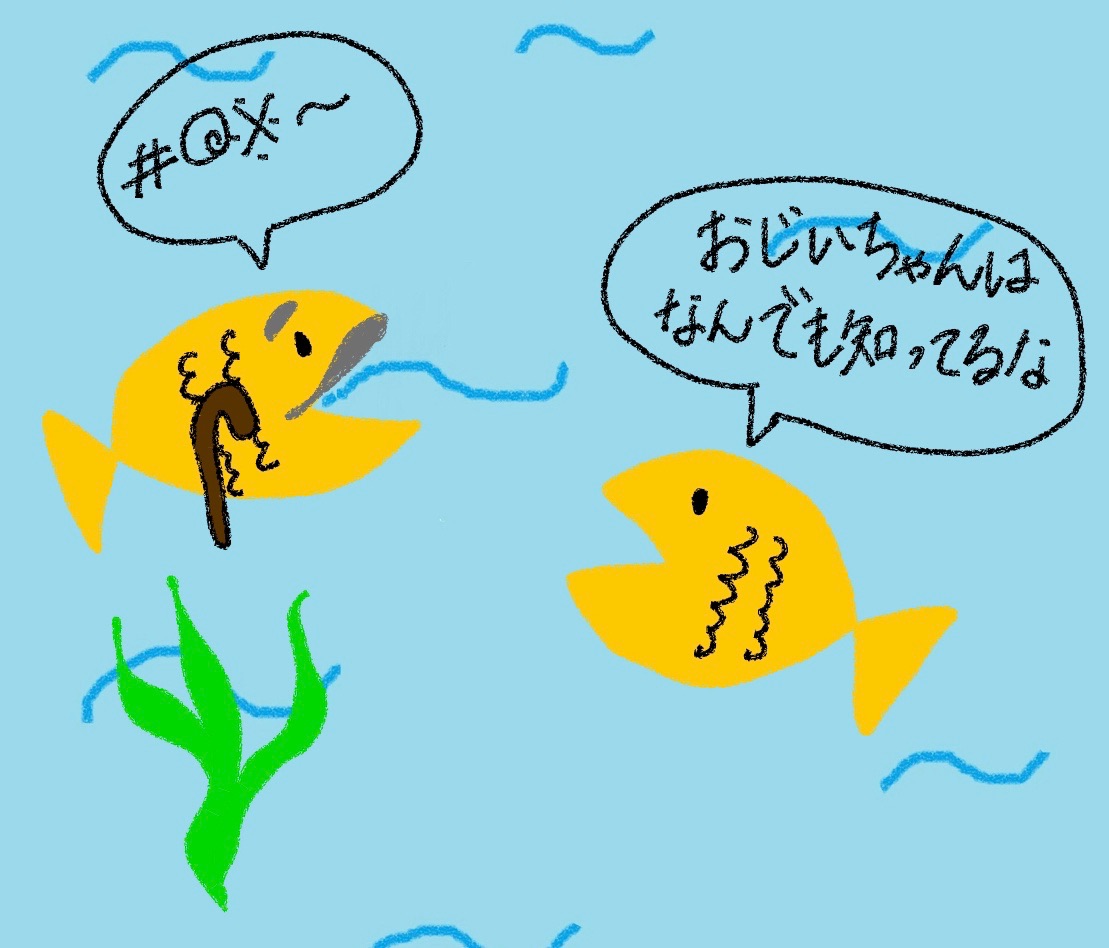 #@※～
おじいちゃんは
なんでも知ってるな